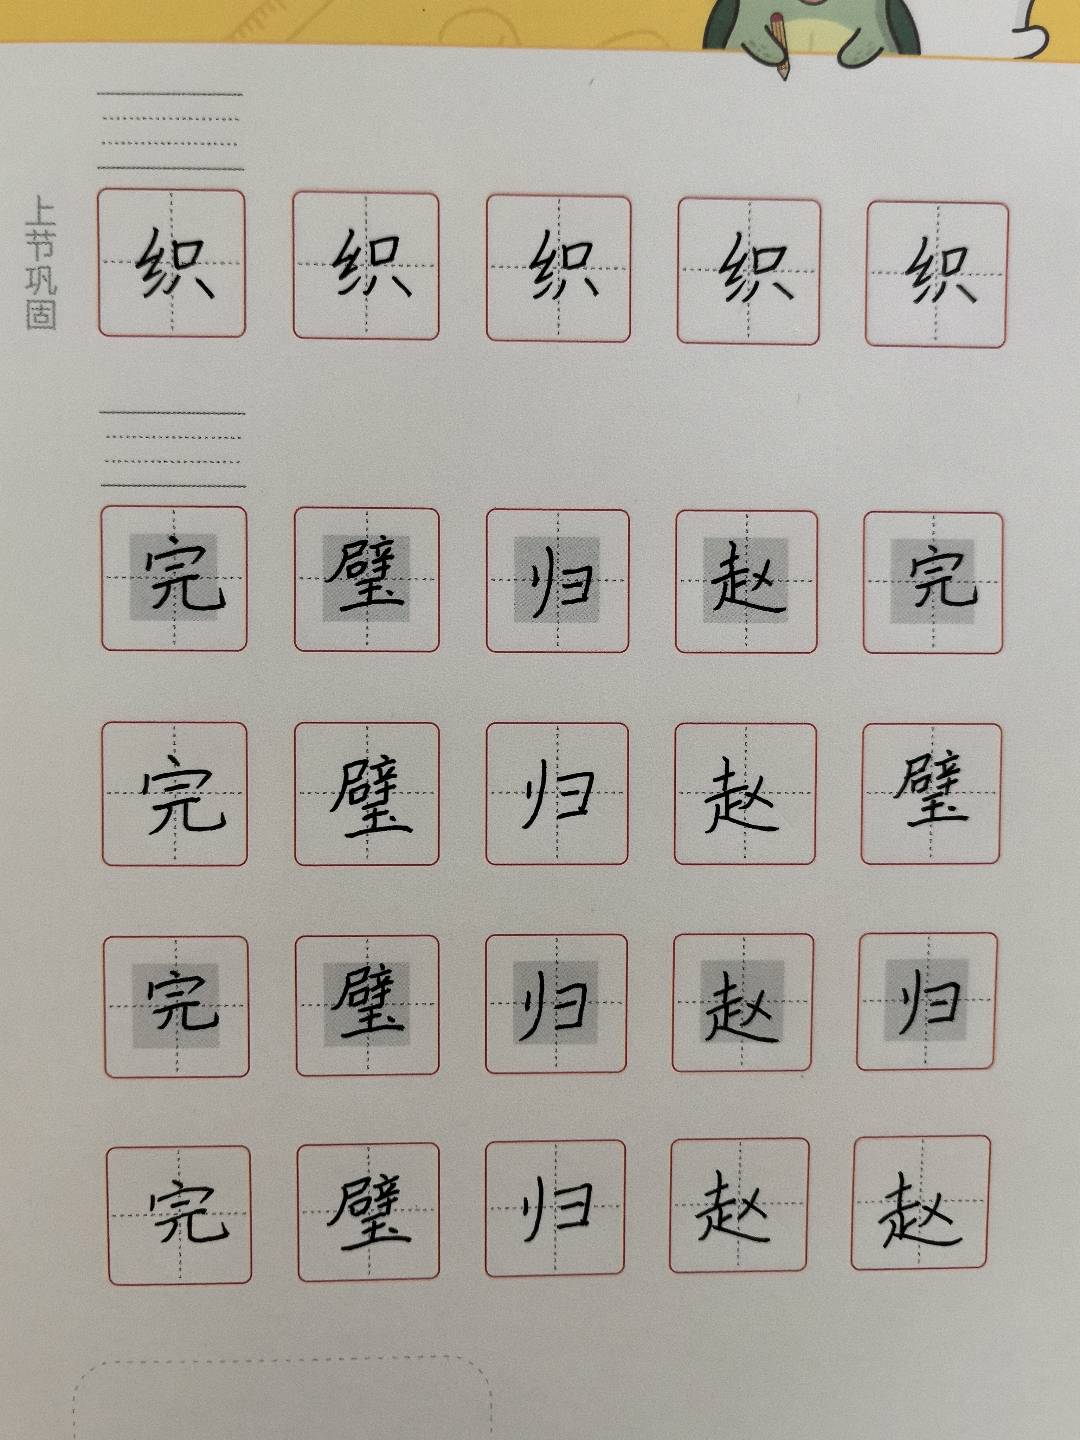 上节巩固
织 织 织 织 织
完 璧 归 赵 完
完 璧 归 赵 璧
完 璧 归 赵 归
完 璧 归 赵 赵